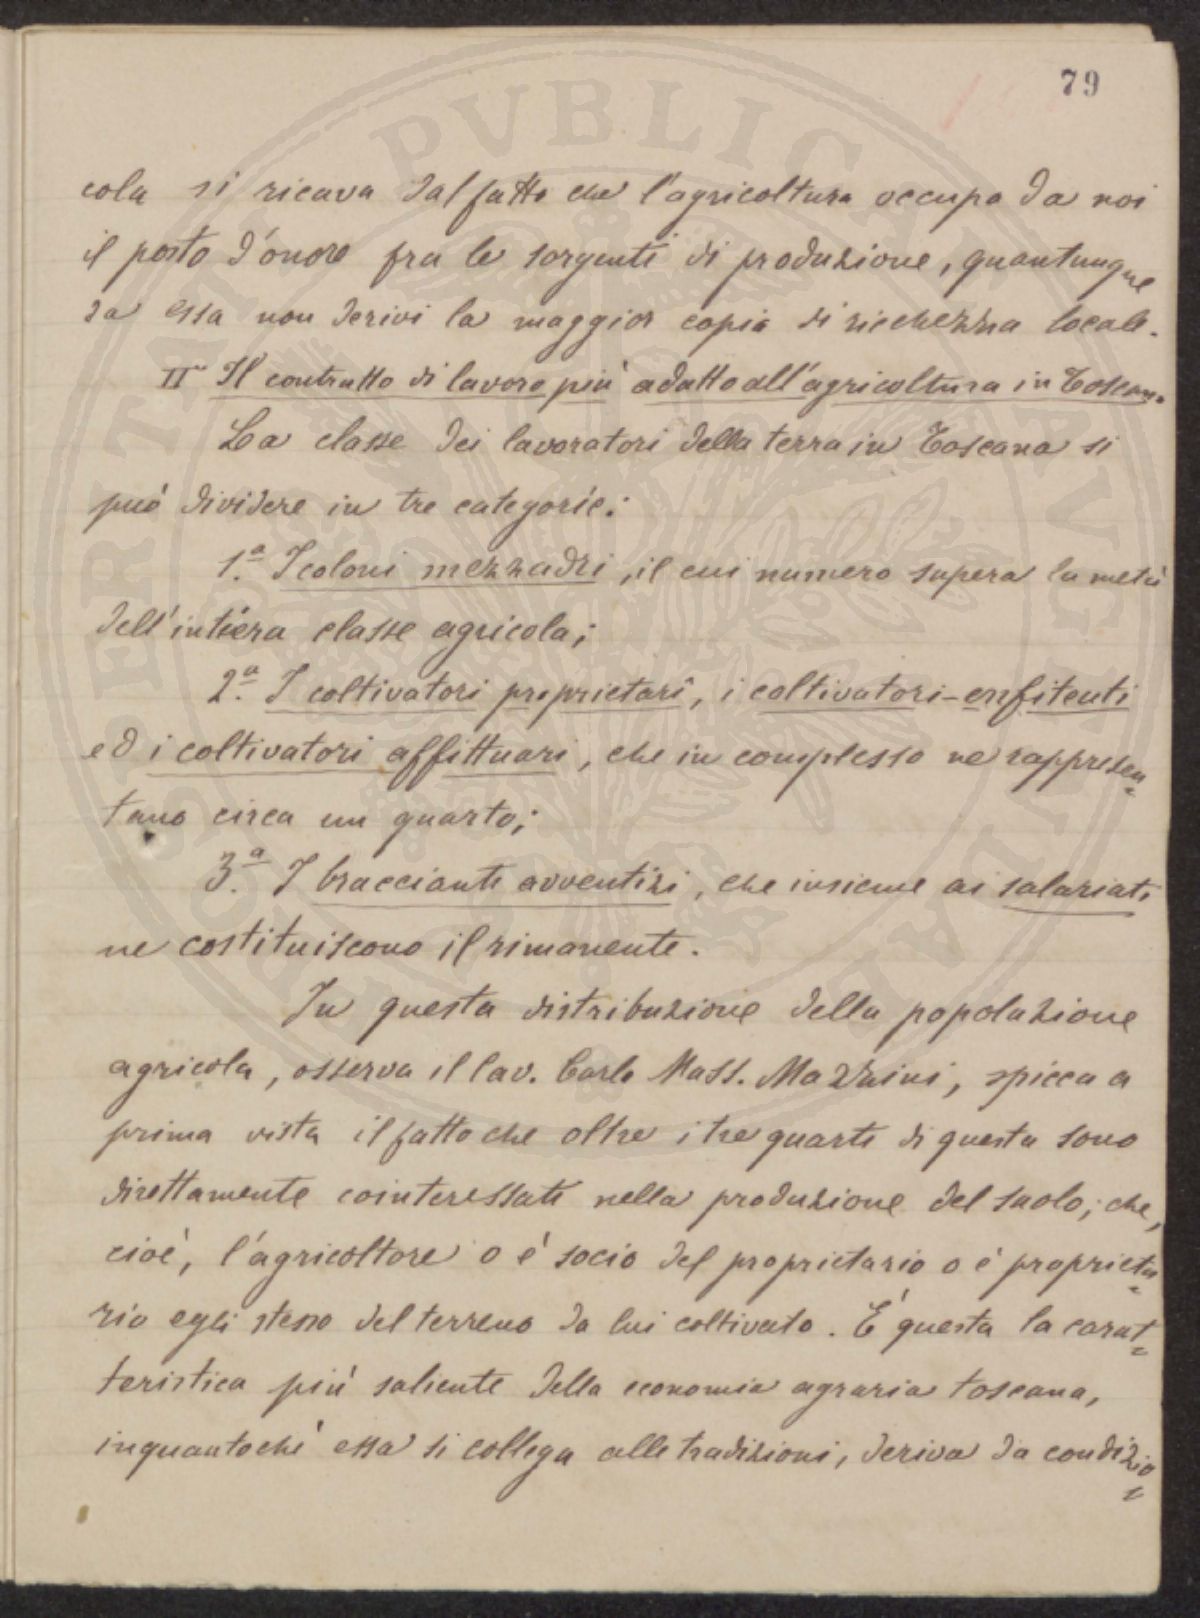 79
cola si ricava dal fatto che l'agricoltura occupa da noi
il posto d'onore fra le sorgenti di produzione, quantunque
da essa non derivi la maggior copia di ricchezza locale.
II° Il contratto di lavoro più adatto all'agricoltura in Toscana.
La classe dei lavoratori della terra in Toscana si
può dividere in tre categorie:
1.ª I coloni mezzadri, il cui numero supera la metà
dell'intiera classe agricola;
2.ª I coltivatori proprietarî, i coltivatori-enfiteuti
ed i coltivatori affittuari, che in complesso ne rappresen=
tano circa un quarto;
3.ª I braccianti avventizi, che insieme ai salariati
ne costituiscono il rimanente.
In questa distribuzione della popolazione
agricola, osserva il Cav. Carlo Mass. Mazzini, spicca a
prima vista il fatto che oltre i tre quarti di questa sono
direttamente cointeressati nella produzione del suolo; che,
cioè, l'agricoltore o è socio del proprietario o è proprieta=
rio egli stesso del terreno da lui coltivato. È questa la carat=
teristica più saliente della economia agraria toscana,
inquantochè essa si collega alle tradizioni, deriva da condizio=
PVBLICAE VTILITATI PROSPERITATI